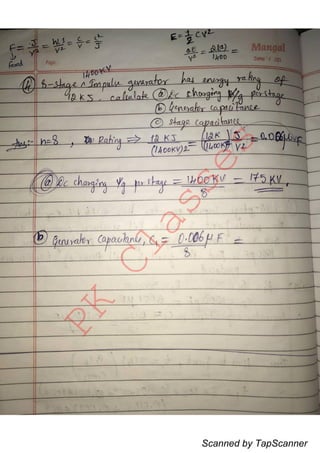 F = J/V² = W.S/V² = C/V = C²/J
E = 1/2 CV²
2E/V² = 2(12)/1400 =
Mangal
Page:
1400KV
④ 8-stage Impulse generator has energy rating of
12 KJ. calculate ⓐ Dc charging V/g per stage
ⓑ Generator capacitance
ⓒ stage capacitance
Ans:- n=8, Rating ⇒ 12 KJ/(1400KV)² = (12K/(1400K)²) J/V² = 0.006µF
ⓐ Dc charging V/g per stage = 1400 KV/8 = 175 KV.
ⓑ Generator Capacitance, C₁ = 0.006µF/8 =
PK Classes
Scanned by TapScanner